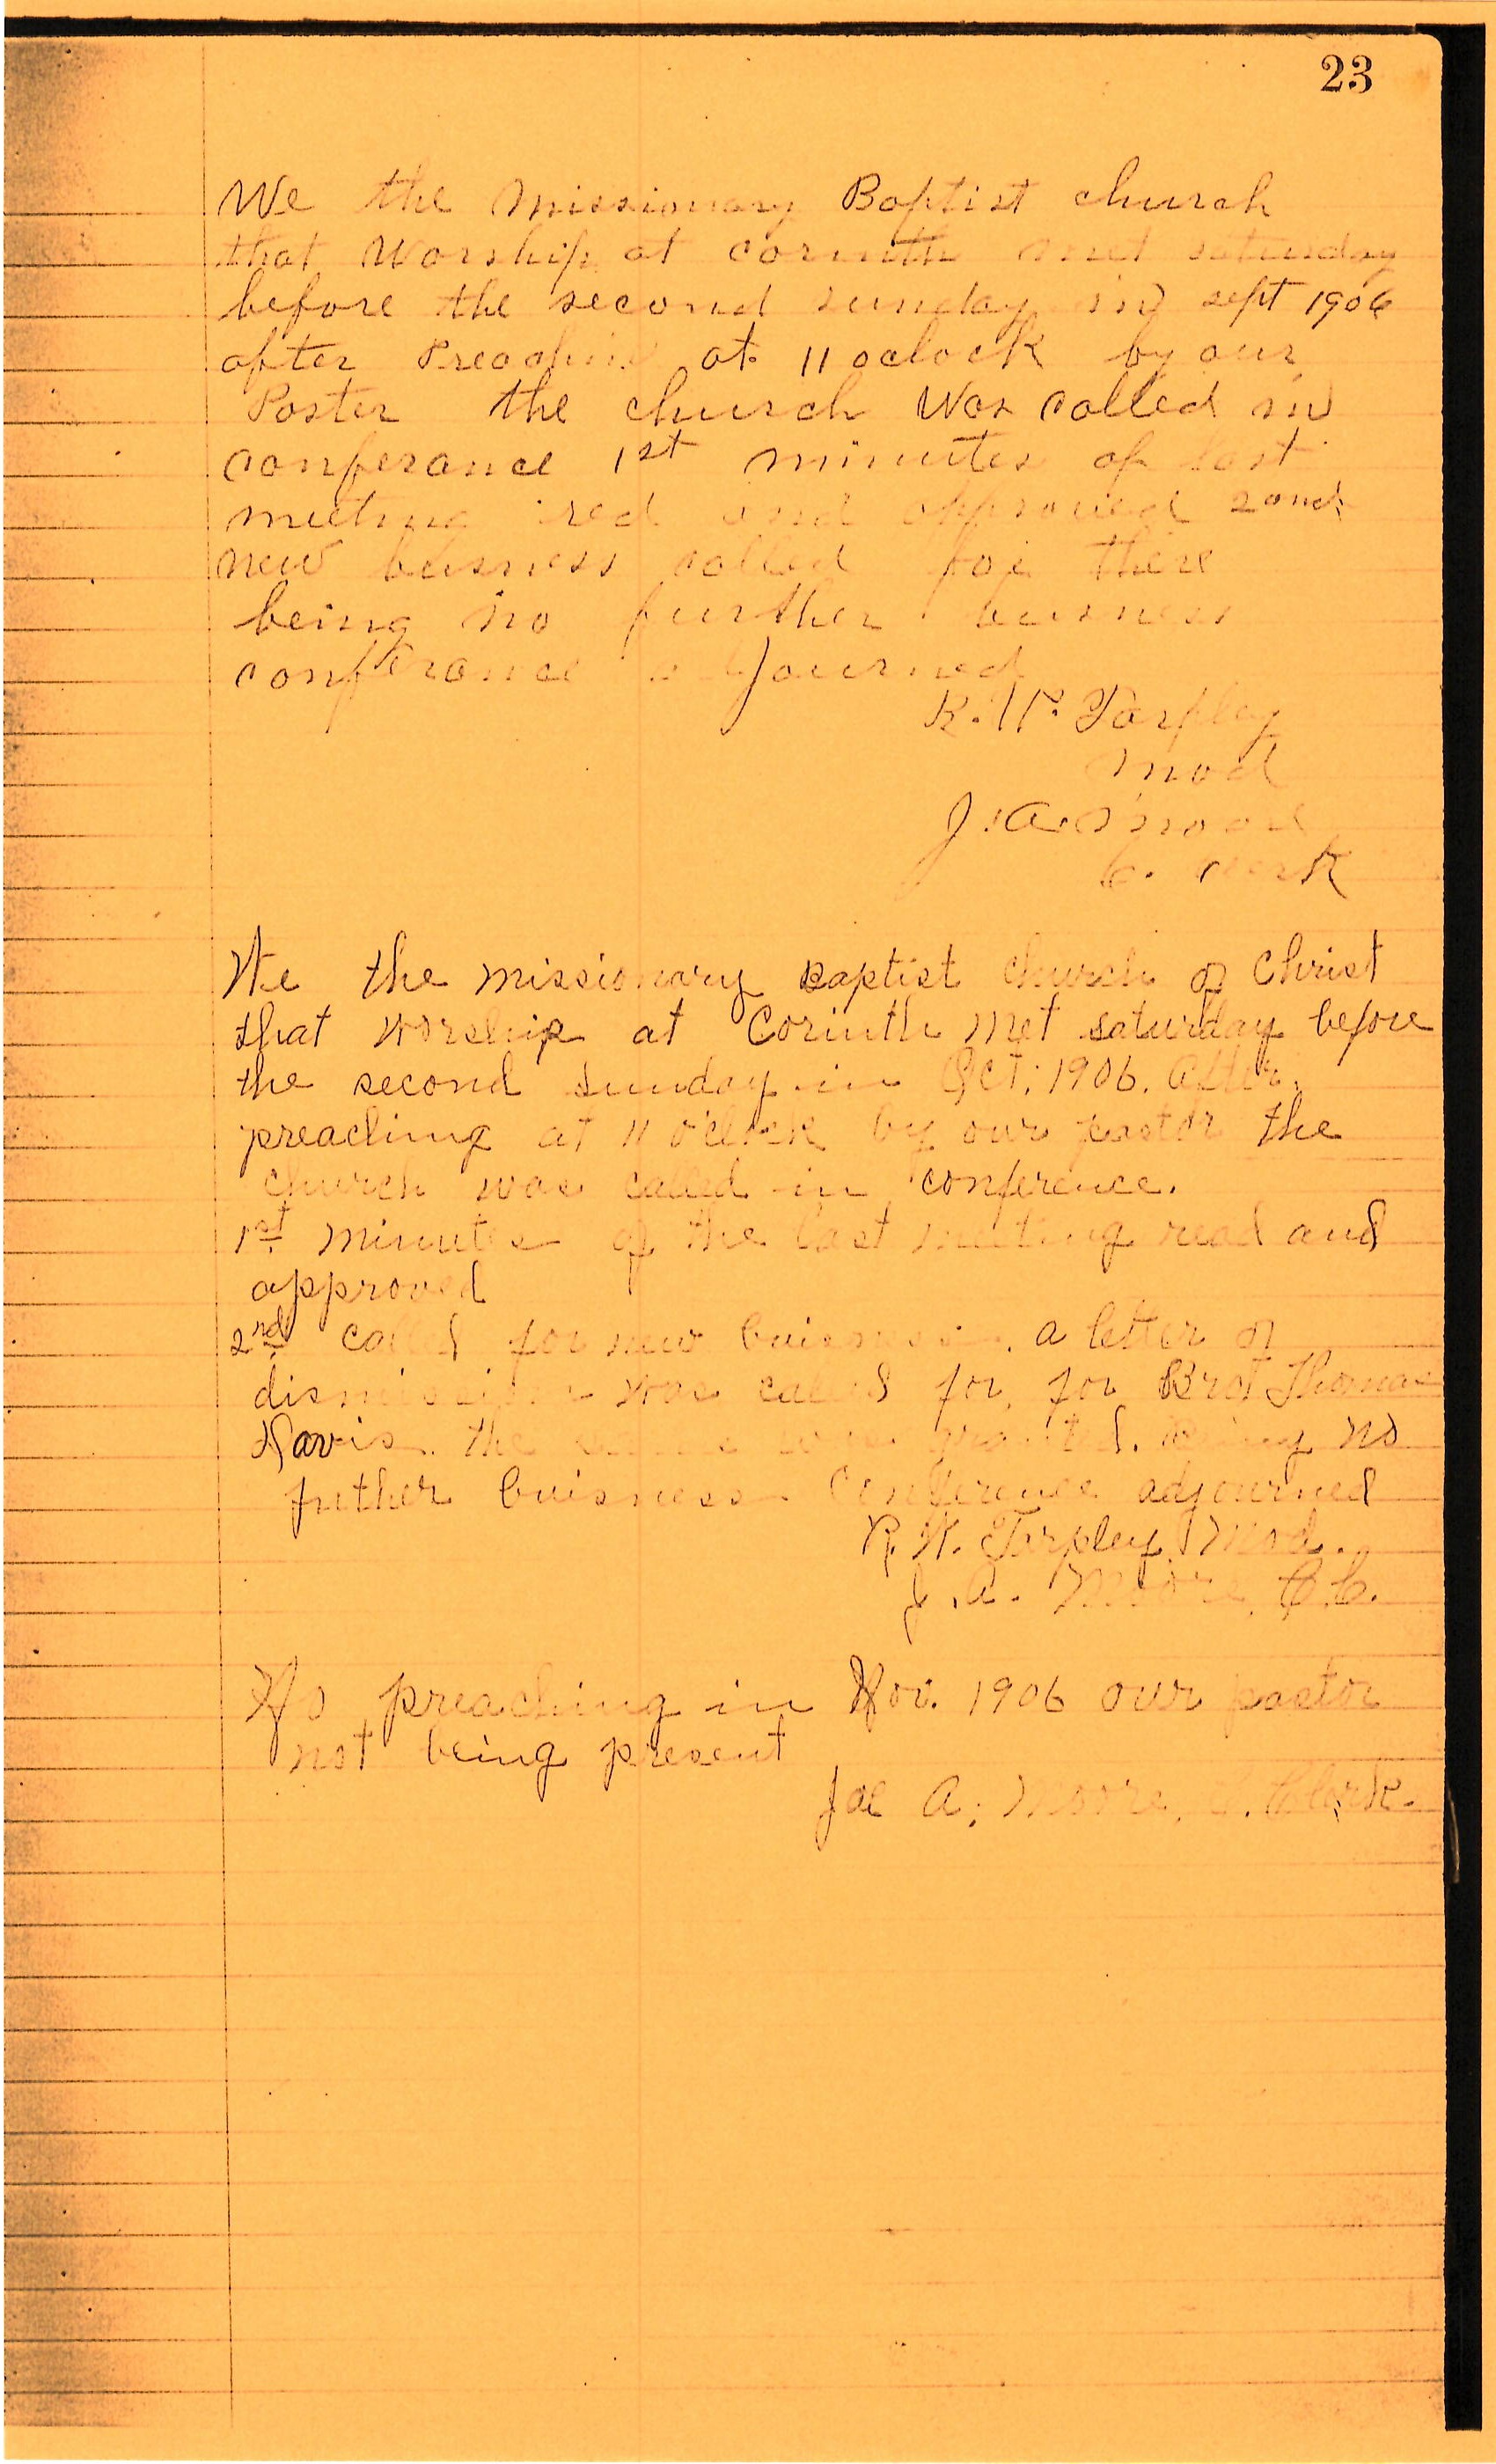 23
We the Missionary Baptist church
that Worship at corinth met saturday
before the second sunday in sept 1906
after Preaching at 11 oclock by our
Paster the church Was called in
conferance 1st minutes of last
meeting red and approved 2ond
new buisness called for there
being no further buisness
conferance adjourned
R. W. Tarpley
Mod
J. A. Moore
C. clerk
We the missionary Baptist church of Christ
that worship at Corinth met saturday before
the second sunday in Oct. 1906. After
preaching at 11 o'clock by our pastor the
church was called in conference.
1st minutes of the last meeting read and
approved
2nd called for new buisness. a letter of
dismission was called for, for Brot Thomas
Davis. the same was granted. Being no
futher buisness. Conference adjourned
R. W. Tarpley Mod.
J. A. Moore, C.C.
No preaching in Nov. 1906 our pastor
not being present
Joe A. Moore, C. Clerk.